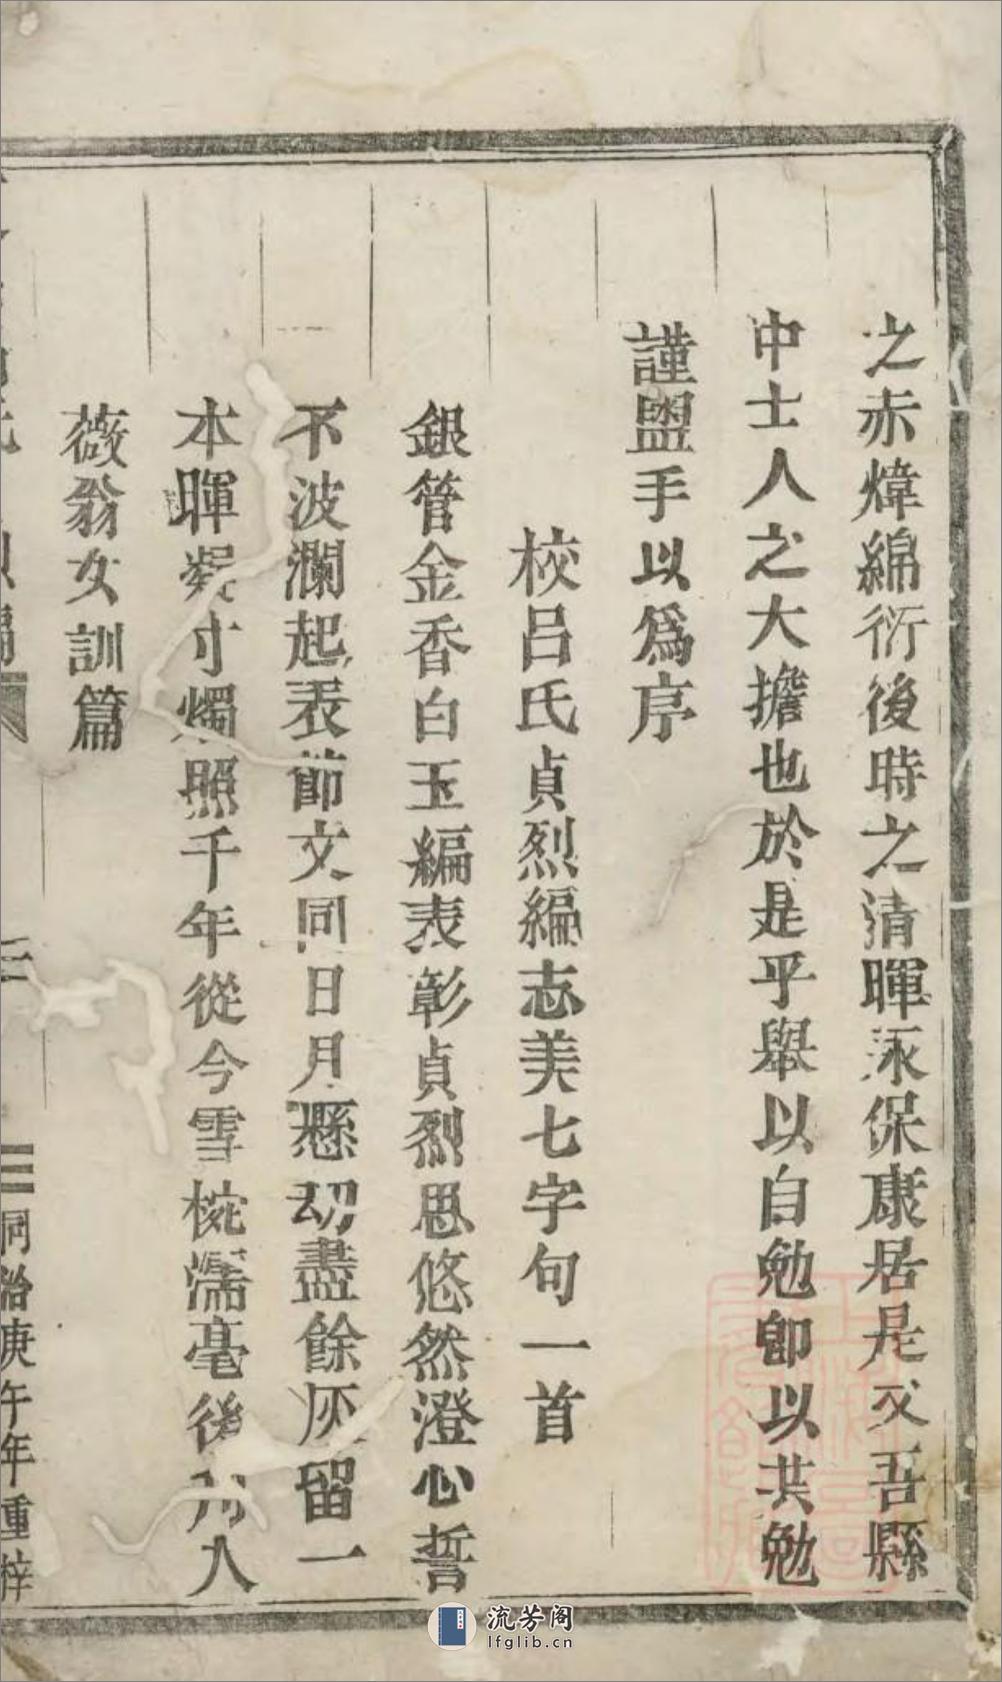 之赤煒綿衍後時之清暉永保康居是又吾縣
中士人之大擔也於是乎舉以自勉卽以共勉
謹盥手以爲序
校呂氏貞烈編志美七字句一首
銀管金香白玉編表彰貞烈思悠然澄心誓
不波瀾起表節文同日月懸刧盡餘灰留一
本暉凝寸燭照千年從今雪椀濡毫後
人
薇翁女訓篇
二
同治庚午年重梓
流芳阁
lfglib.cn